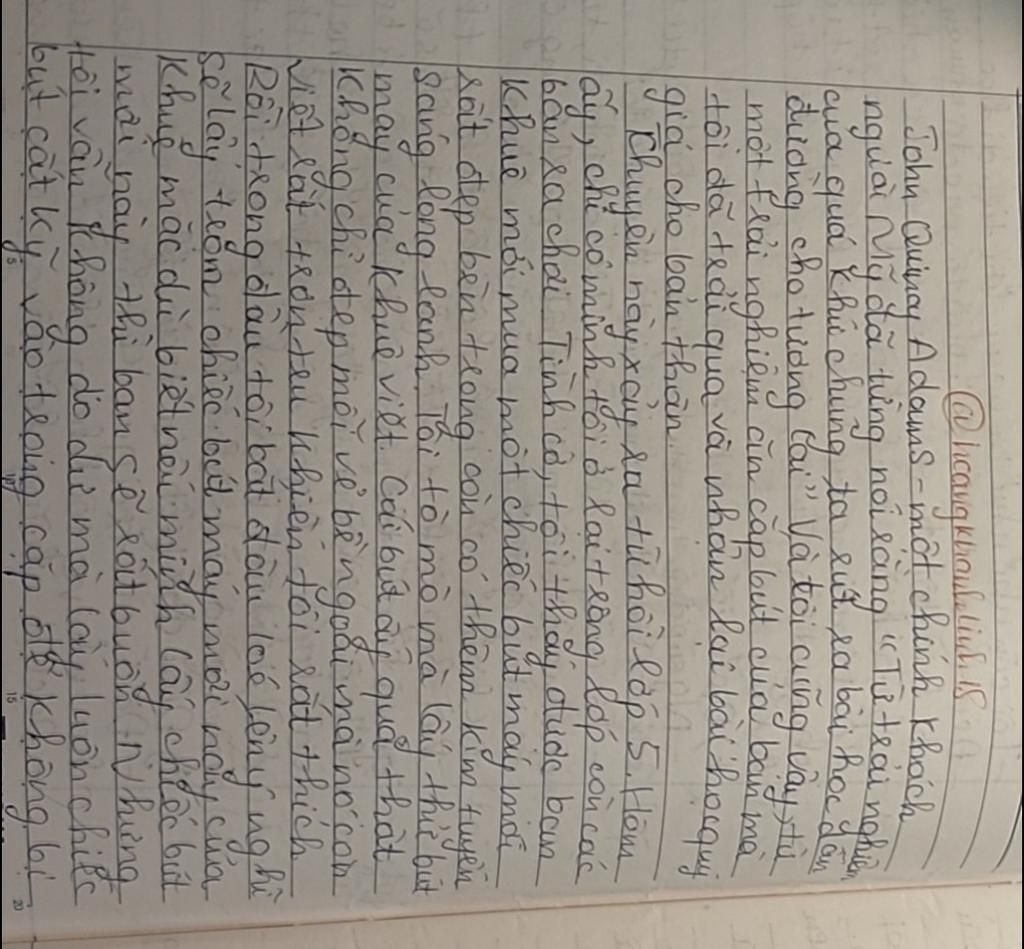 @hoangkhanhlinh18
John Quinay Adams - một chính khách
người Mỹ đã từng nói rằng "Từ trải nghiệm
qua quá khứ chúng ta rút ra bài học dẫn
đường cho tương lai" Và tôi cũng vậy, từ
một trải nghiệm ăn cắp bút của bạn mà
tôi đã trải qua và nhận lại bài học quý
giá cho bản thân.
Chuyện này xảy ra từ hồi lớp 5. Hôm
ấy, chỉ có mình tôi ở lại trong lớp còn các
bạn ra chơi. Tình cờ, tôi thấy được bạn
Khuê mới mua một chiếc bút máy mới
rất đẹp bên trong còn có thêm kim tuyến
sáng long lanh. Tôi tò mò mà lấy thử bút
máy của Khuê viết. Cái bút ấy quả thật
không chỉ đẹp mỗi vẻ bề ngoài mà nó còn
viết rất trơn tru khiến tôi rất thích.
Rồi trong đầu tôi bắt đầu loé lên ý nghĩ
sẽ lấy trộm chiếc bút máy mới này của
Khuê mặc dù biết nói mình lấy chiếc bút
mới này thì bạn sẽ rất buồn. Nhưng
tôi vẫn không do dự mà lấy luôn chiếc
bút cất kỹ vào trong cặp để không bị
15
20